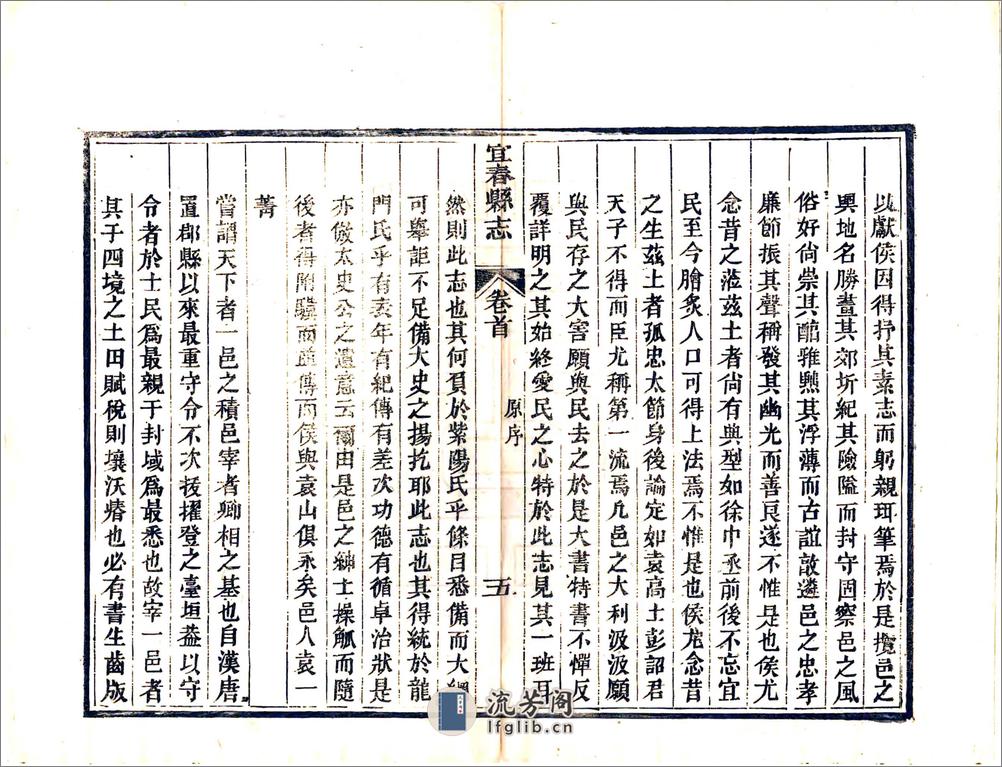 以獻侯因得抒其素志而躬親珥筆焉於是攬邑之
輿地名勝晝其郊圻紀其險隘而封守固察邑之風
俗好尚崇其醕雅黜其浮薄而古誼敦遴邑之忠孝
廉節振其聲稱發其幽光而善良遂不惟是也侯尤
念昔之蒞茲土者尙有典型如徐中丞前後不忘宜
民至今膾炙人口可得上法焉不惟是也侯尨念昔
之生茲土者孤忠太節身後論定如袁高士彭詔君
天子不得而臣尤稱第一流焉凡邑之大利汲汲願
與民存之大害願與民去之於是大書特書不憚反
覆詳明之其始終愛民之心特於此志見其一班耳
宜春縣志
卷首
原序
五
然則此志也其何負於紫陽氏乎條目悉備而大綱
可舉詎不足備大史之揚扢耶此志也其得統於龍
門氏乎有表年有紀傳有差次功德有循卓治狀是
亦倣太史公之遺意云爾由是邑之紳士操觚而隨
後者得附驥而並傳而侯與袁山俱永矣邑人袁一
菁
嘗謂天下者一邑之積邑宰者卿相之基也自漢唐
置郡縣以來最重守令不次拔擢登之臺垣葢以守
令者於士民爲最親于封域爲最悉也故宰一邑者
其于四境之土田賦稅則壤沃瘠也必有書生齒版
流芳阁
lfglib.cn